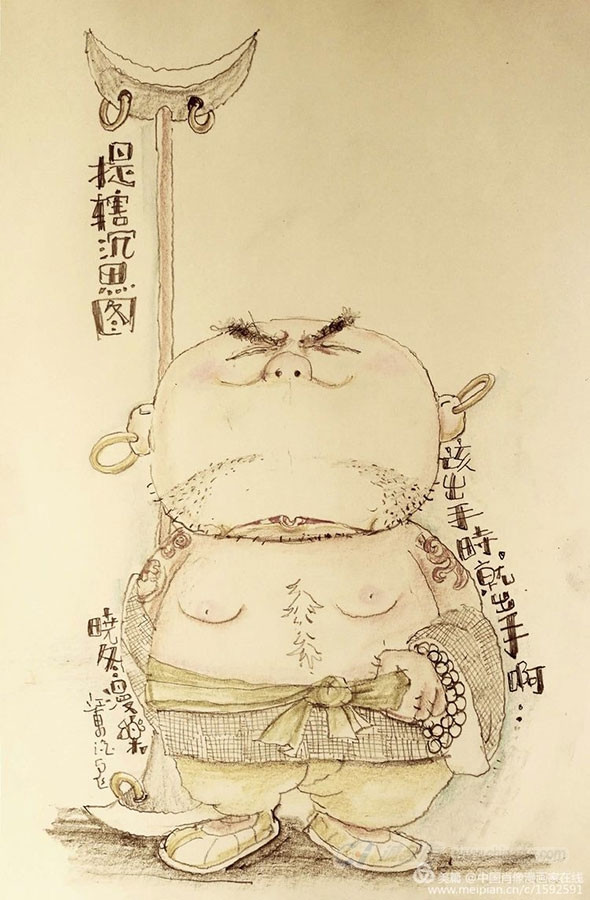 提辖沉思图
该出手時.就出手啊...
晓冬.漫樂
美篇 @中国肖像漫画家在线
www.meipian.cn/c/1592591